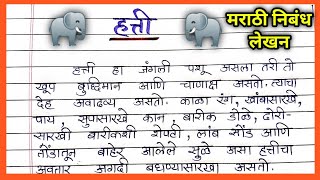 हत्ती
मराठी निबंध
लेखन
हत्ती हा जंगली पशू असला तरी तो
खूप बुध्दिमान आणि चाणाक्ष असतो. त्याचा
देह अवाढव्य असतो. काळा रंग, खांबासारखे
पाय, सुपासारखे कान, बारीक डोळे, दोरी-
सारखी बारीकशी शेपटी, लांब सोंड आणि
तोंडातून बाहेर आलेले सुळे असा हत्तीचा
अवतार अगदी बघण्यासारखा असतो.